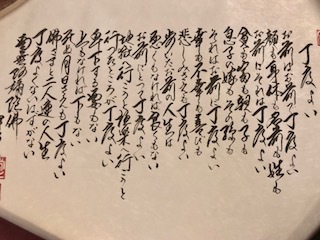 丁度よい
お前はお前で丁度よい
顔も身体も名前も姓も
お前にそれは丁度よい
貧も富も親も子も
息子の嫁もその孫も
それはお前に丁度よい
幸も不幸も喜びも
悲しみさえも丁度よい
歩いたお前の人生は
悪くもなければ良くもない
お前にとって丁度よい
地獄へ行こうと極楽へ行こうと
行ったところが丁度よい
卑下する要もない
上もなければ下もない
死ぬ月日さえも丁度よい
佛さまと二人連の人生
丁度よくないはずがない
南無阿弥陀佛